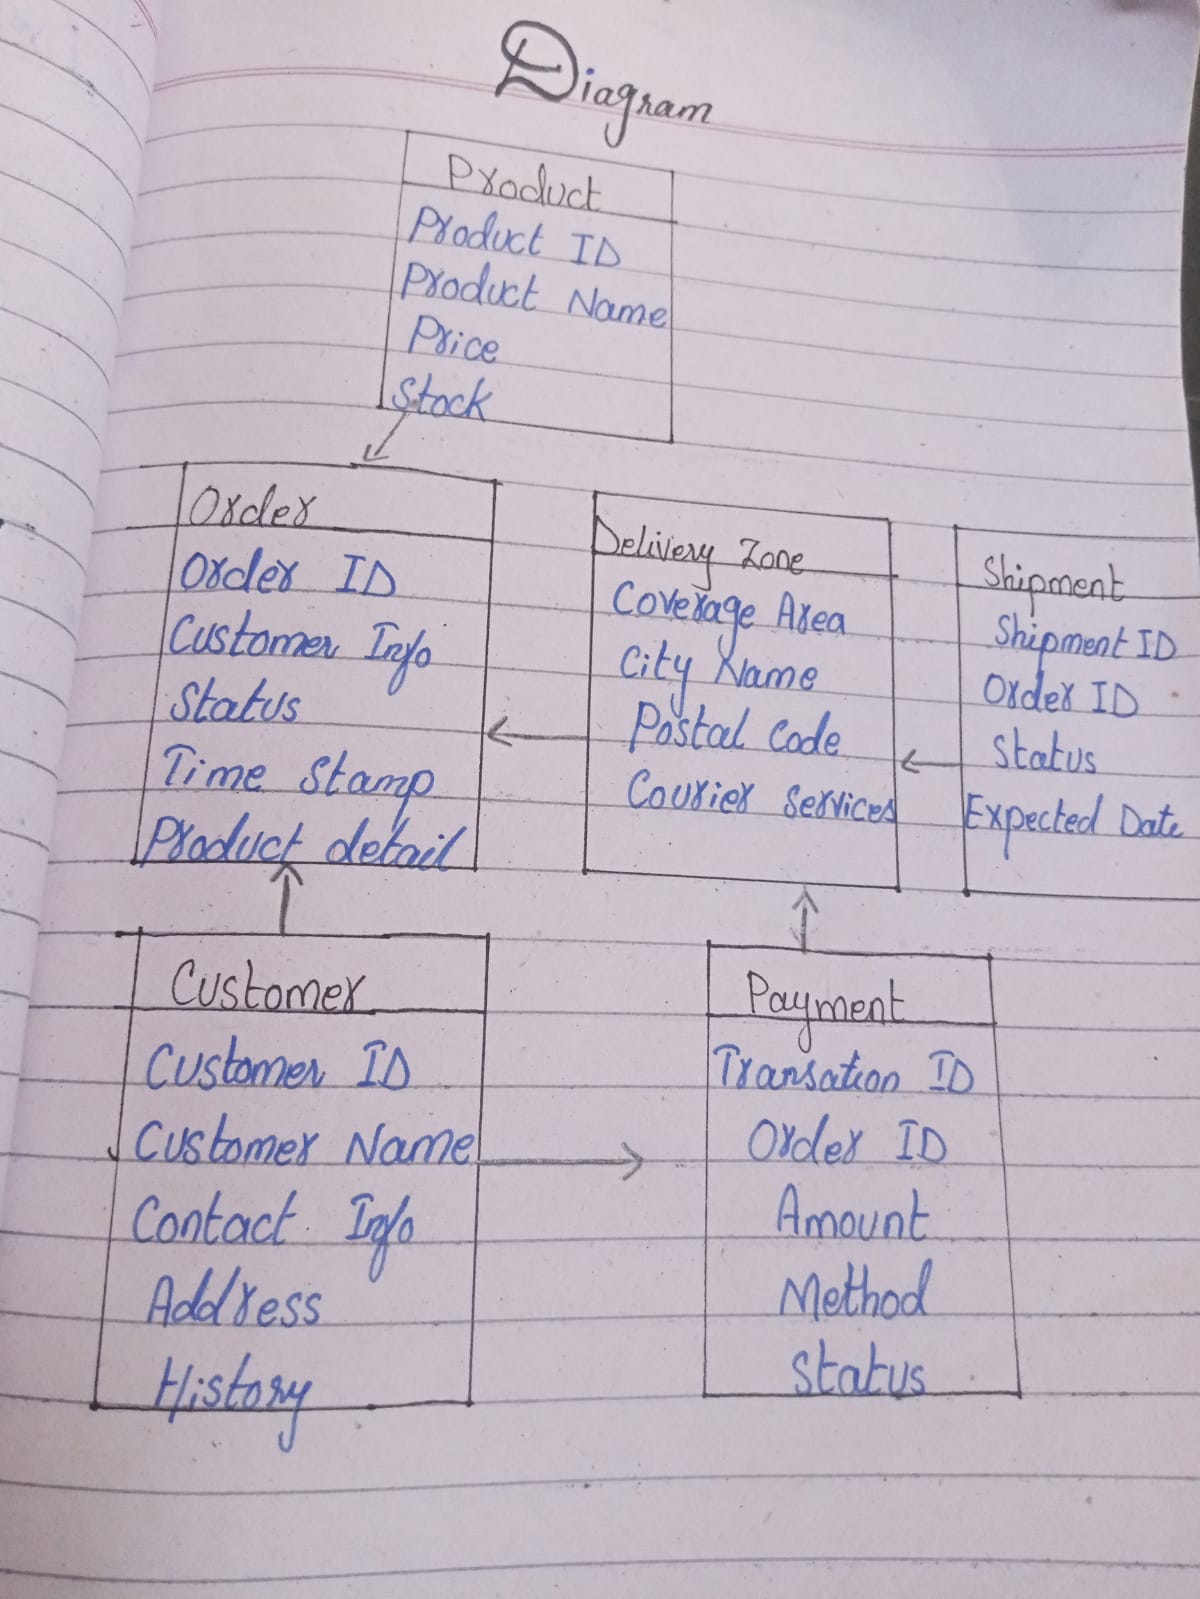 Diagram
Product
Product ID
Product Name
Price
Stock
Order
Order ID
Customer Info
Status
Time Stamp
Product detail
Delivery Zone
Coverage Area
City Name
Postal Code
Courier Services
Shipment
Shipment ID
Order ID
Status
Expected Date
Customer
Customer ID
Customer Name
Contact Info
Address
History
Payment
Transation ID
Order ID
Amount
Method
Status